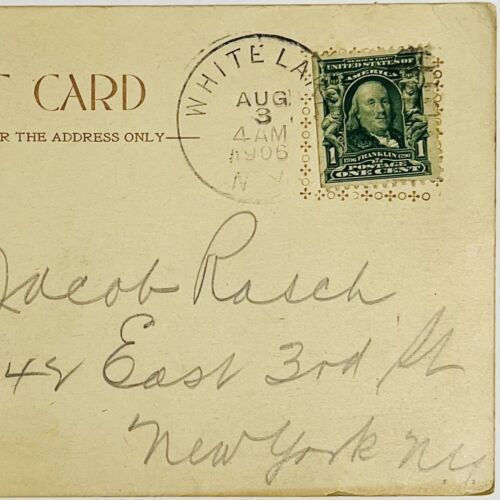 T CARD
R THE ADDRESS ONLY
WHITE LA
AUG
3
4 AM
1906
N.Y.
SERIES 1902
UNITED STATES OF AMERICA
1 1706 FRANKLIN 1790 1
POSTAGE
ONE CENT
Jacob Rasch
42 East 3rd St
New York NY